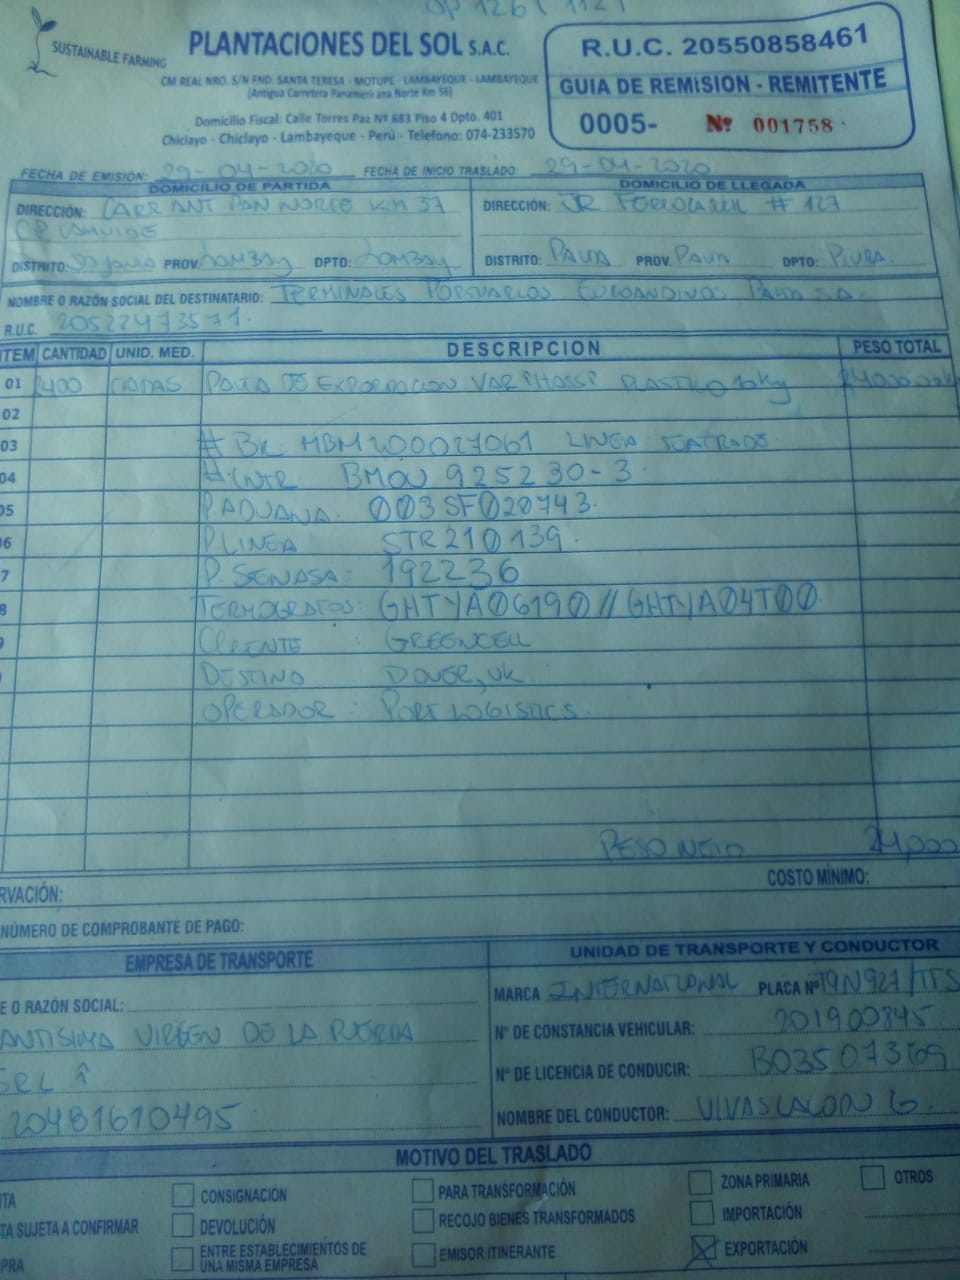 OP 1261 1121
SUSTAINABLE FARMING
PLANTACIONES DEL SOL S.A.C.
CM REAL NRO. S/N FND. SANTA TERESA - MOTUPE - LAMBAYEQUE - LAMBAYEQUE
(Antigua Carretera Panamericana Norte Km 56)
Domicilio Fiscal: Calle Torres Paz Nº 683 Piso 4 Dpto. 401
Chiclayo - Chiclayo - Lambayeque - Perú - Telefono: 074-233570
R.U.C. 20550858461
GUIA DE REMISION - REMITENTE
0005- Nº 001758
FECHA DE EMISIÓN: 29-04-2020 FECHA DE INICIO TRASLADO: 29-04-2020
DOMICILIO DE PARTIDA
DIRECCIÓN: CARR ANT PAN NORTE KM 37
DISTRITO: PROV: LAMBAY DPTO: LAMBAY
DOMICILIO DE LLEGADA
DIRECCIÓN: JR FERROCARRIL # 127
DISTRITO: PAITA PROV: PAITA DPTO: PIURA.
NOMBRE O RAZÓN SOCIAL DEL DESTINATARIO: TERMINALES PORTUARIOS EUROANDINOS PAITA S.A.
R.U.C. 20522473571.
ITEM CANTIDAD UNID. MED. DESCRIPCION PESO TOTAL
01 2400 CAJAS PALTA DE EXPORTACION VAR "HASS" PLASTICO 10Kg 24000.00K
02
03 # BK: HBM200027061 LINEA SEATRADE
04 # CNTR BMOU 925230-3
05 P. ADUANA: 003SF020743.
6 P. LINEA STR210139.
7 P. SENASA: 192236
8 TERMOGRAFOS: GHTYA06190 // GHTYA04T00.
CLIENTE : GREENCELL
DESTINO DOVER, UK
OPERADOR : PORT LOGISTICS.
PESO NETO 24,000
RVACIÓN: COSTO MÍNIMO:
NÚMERO DE COMPROBANTE DE PAGO:
EMPRESA DE TRANSPORTE
E O RAZÓN SOCIAL:
ANTISIMA VIRGEN DE LA PUERTA
SRL
20481610495
UNIDAD DE TRANSPORTE Y CONDUCTOR
MARCA INTERNATIONAL PLACA Nº T9N921/
Nº DE CONSTANCIA VEHICULAR: 201900845
Nº DE LICENCIA DE CONDUCIR: B03507369
NOMBRE DEL CONDUCTOR:
MOTIVO DEL TRASLADO
TA CONSIGNACIÓN PARA TRANSFORMACIÓN ZONA PRIMARIA OTROS
TA SUJETA A CONFIRMAR DEVOLUCIÓN RECOJO BIENES TRANSFORMADOS IMPORTACIÓN
PRA ENTRE ESTABLECIMIENTOS DE UNA MISMA EMPRESA EMISOR ITINERANTE EXPORTACIÓN